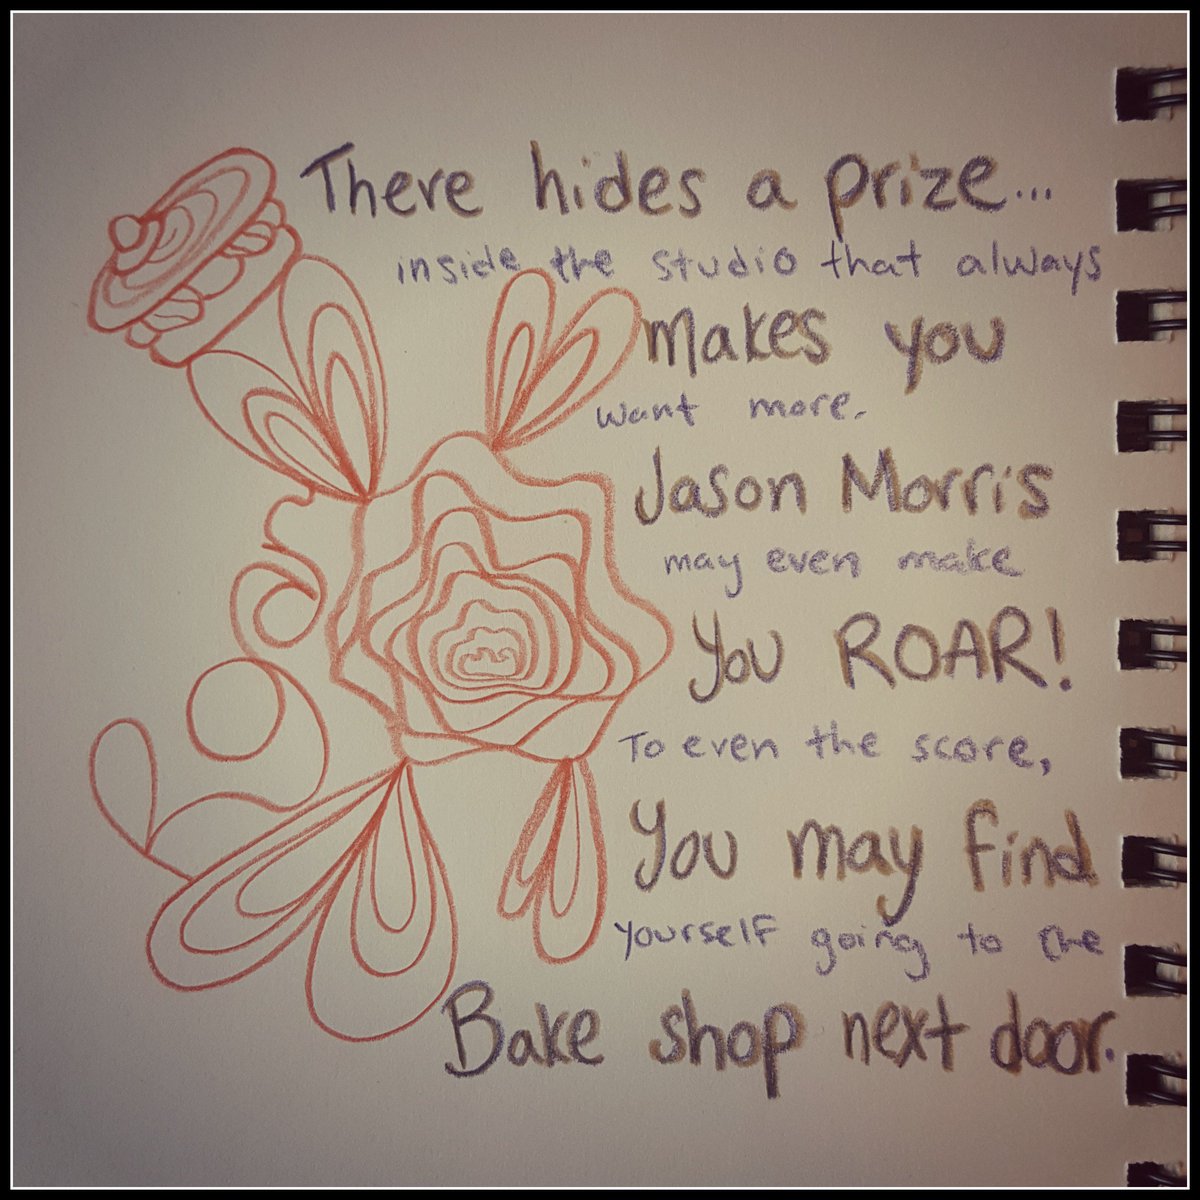 There hides a prize...
inside the studio that always
makes you
want more.
Jason Morris
may even make
You ROAR!
To even the score,
You may find
yourself going to the
Bake shop next door.